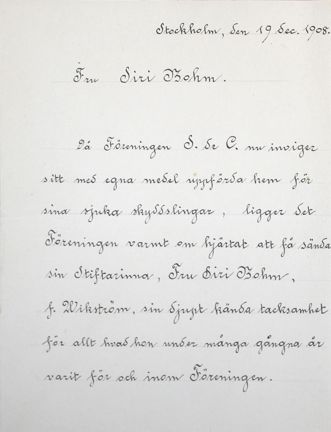 Stockholm, den 19 dec. 1908.
Fru Siri Bohm.
Då Föreningen S. de C. nu inviger
sitt med egna medel uppförda hem för
sina sjuka skyddslingar, ligger det
Föreningen varmt om hjärtat att få sända
sin Stiftarinna, Fru Siri Bohm,
f. Wikström, sin djupt kända tacksamhet
för allt hvad hon under många gångna år
varit för och inom Föreningen.